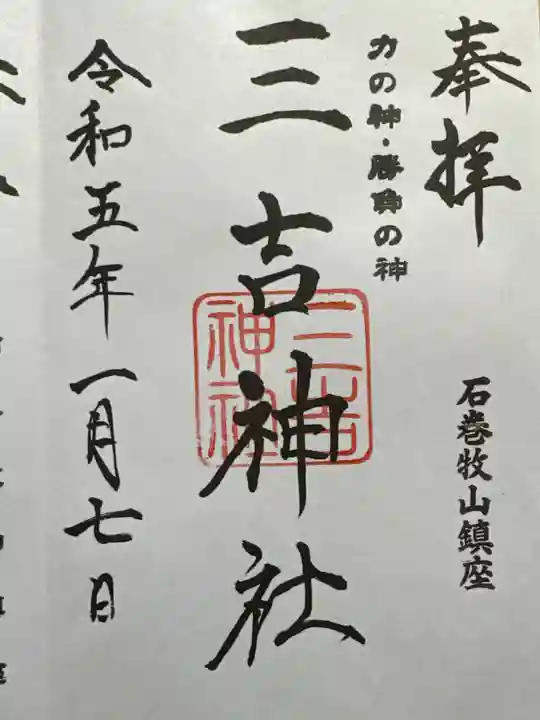 奉拝
石巻牧山鎮座
力の神・勝負の神
三吉神社
三吉神社
令和五年一月七日